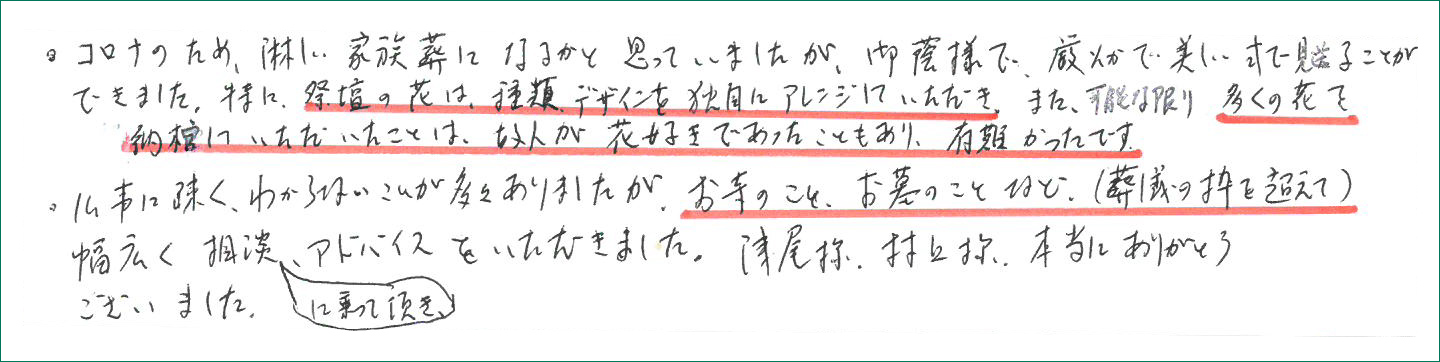 ・コロナのため、淋しい家族葬になるかと思っていましたが、御蔭様で、厳かで美しい式で見送ることが
できました。特に、祭壇の花は、種類、デザインを独自にアレンジしていただき、また、可能な限り多くの花を
納棺していただいたことは、故人が花好きであったこともあり、有難かったです。
・仏事に疎く、わからないことが多々ありましたが、お寺のこと、お墓のことなど、(葬儀の枠を超えて)
幅広く相談、アドバイスをいただきました。津尾様、村上様、本当にありがとう
ございました。 に乗って頂き、